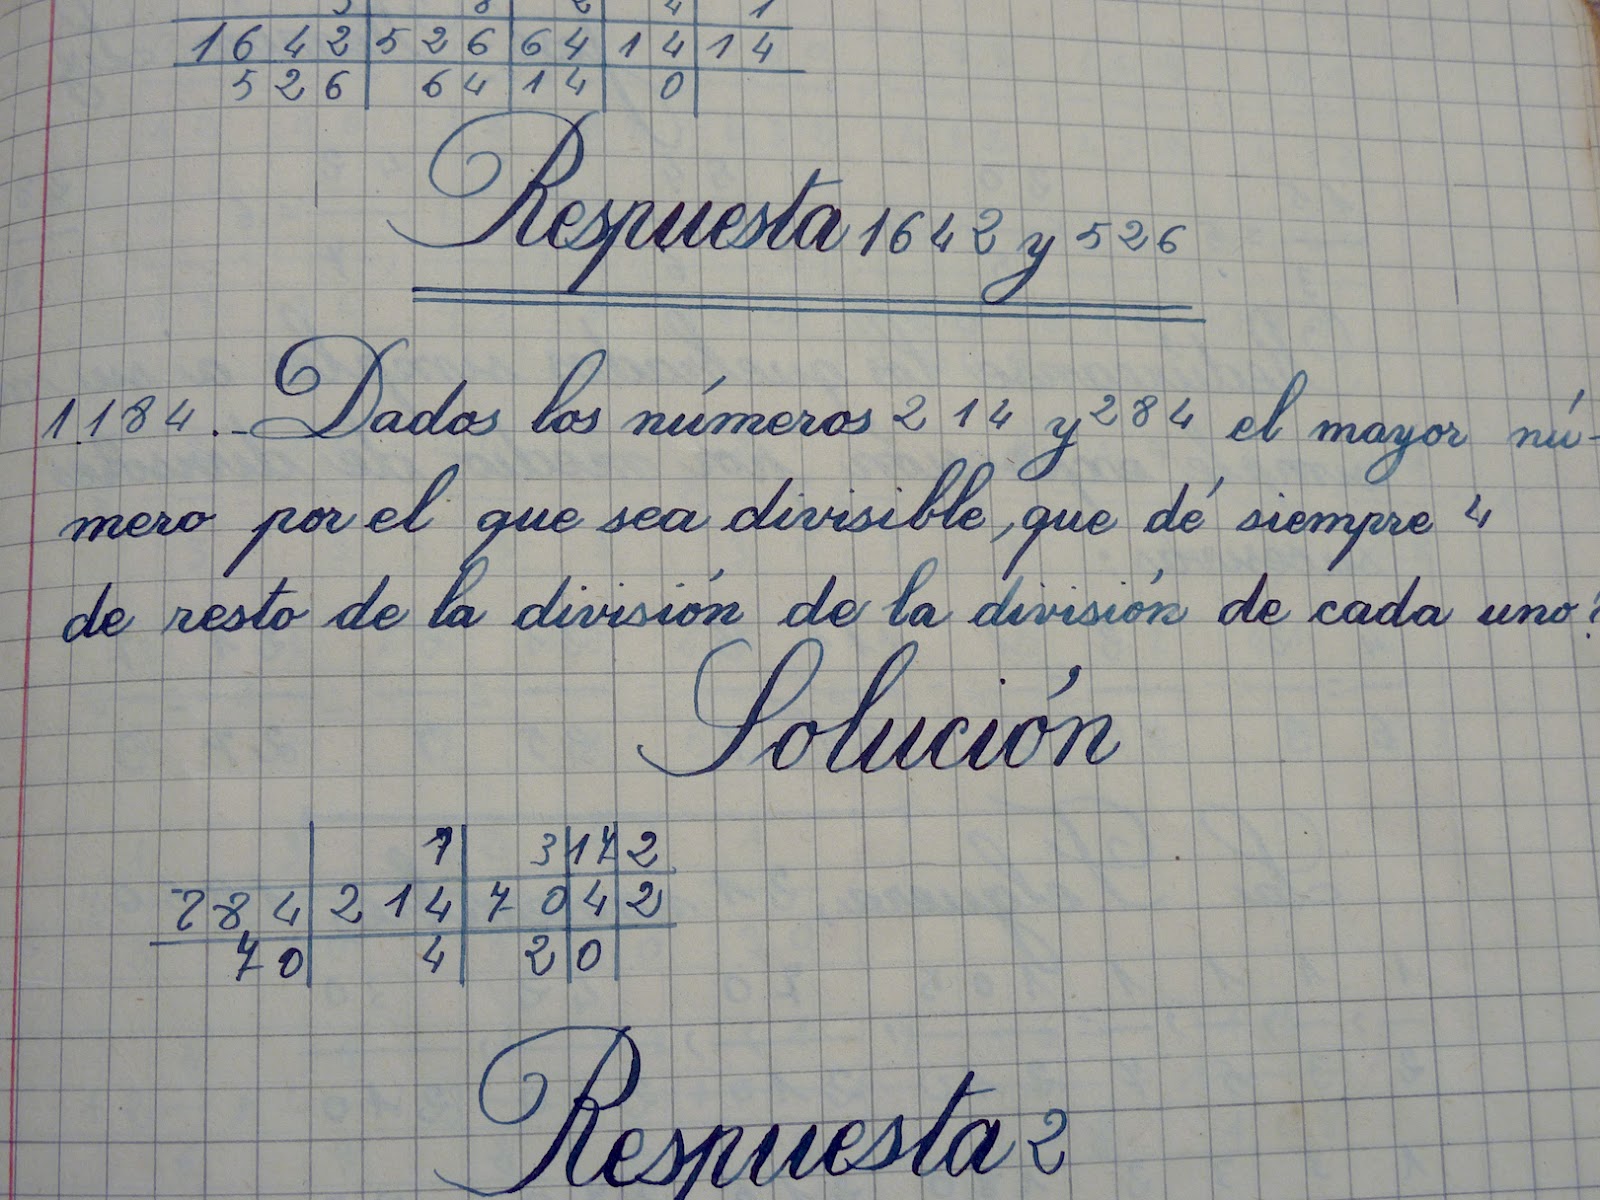 3 8 2 4 1
1642 526 64 14 14
526 64 14 0
Respuesta 1642 y 526
1.184.- Dados los números 214 y 284 el mayor nú-
mero por el que sea divisible, que dé siempre 4
de resto de la división de la división de cada uno?
Solución
1 3 17 2
284 214 70 4 2
70 4 2 0
Respuesta 2